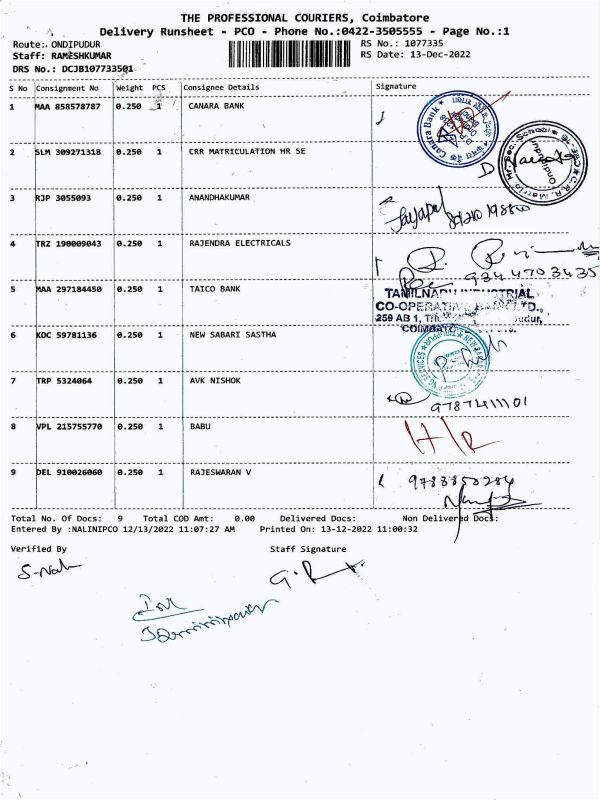 THE PROFESSIONAL COURIERS, Coimbatore
Delivery Runsheet - PCO - Phone No.:0422-3505555 - Page No.:1
Route: ONDIPUDUR
RS No.: 1077335
Staff: RAMESHKUMAR
RS Date: 13-Dec-2022
DRS No.: DCJB107733501
S No Consignment No Weight PCS Consignee Details Signature
1 MAA 858578787 0.250 1 CANARA BANK
Canara Bank
2 SLM 309271318 0.250 1 CRR MATRICULATION HR SE
3 RJP 3055093 0.250 1 ANANDHAKUMAR
4 TRZ 190009043 0.250 1 RAJENDRA ELECTRICALS
9344703435
5 MAA 297184450 0.250 1 TAICO BANK
TAMILNADU INDUSTRIAL
CO-OPERATIVE BANK LTD.,
259 AB 1,
6 KOC 59781136 0.250 1 NEW SABARI SASTHA
7 TRP 5324064 0.250 1 AVK NISHOK
9787411101
8 VPL 215755770 0.250 1 BABU
H/R
9 DEL 910026060 0.250 1 RAJESWARAN V
Total No. Of Docs: 9 Total COD Amt: 0.00 Delivered Docs: Non Delivered Docs:
Entered By :NALINIPCO 12/13/2022 11:07:27 AM Printed On: 13-12-2022 11:00:32
Verified By Staff Signature